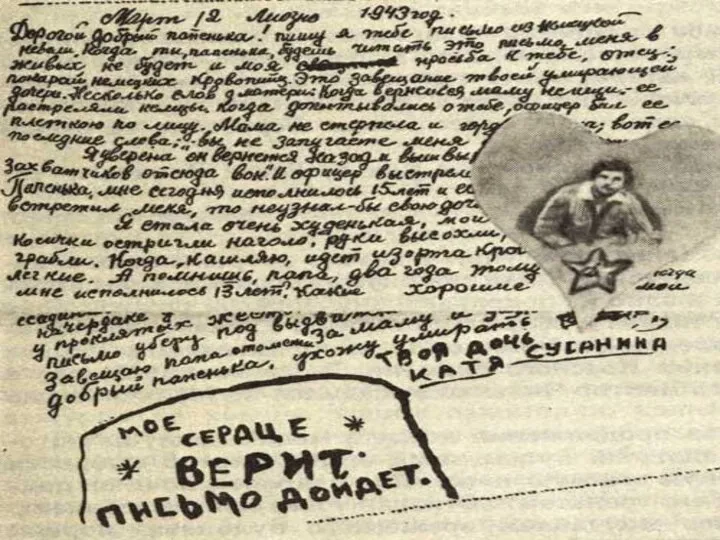 Март, 12 Лиозно 1943 год.
Дорогой добрый папенька! пишу я тебе письмо из немецкой
неволи. Когда ты, папенька, будешь читать это письмо, меня в
живых не будет и моя просьба к тебе, отец:
покарай немецких кровопийц. Это завещание твоей умирающей
дочери. Несколько слов о матери: Когда вернешься маму не ищи - ее
растреляли немцы. Когда допытывались о тебе, офицер бил ее
плеткою по лицу. Мама не стерпела и гор вот ее
последние слова; "вы не запугаете меня
Я уверена он вернется назад и вышвы
захватчиков отсюда вон". И офицер выстрел
Папенька, мне сегодня исполнилось 15 лет и ес
встретил меня, то неузнал-бы свою доч
Я стала очень худенькая, мои
косички остригли наголо, руки высохли,
грабли. Когда кашляю, идет изорта кро
легкие. А помнишь, папа, два года тому когда
мне исполнилось 13 лет? Какие хорошие мои
на чердаке у
у проклятых жест
письмо уберу под
Завещаю папа отомсти за маму и
добрый папенька, ухожу умирать
ТВОЯ ДОЧЬ
КАТЯ СУСАНИНА
МОЕ
СЕРДЦЕ
ВЕРИТ.
ПИСЬМО ДОЙДЕТ.